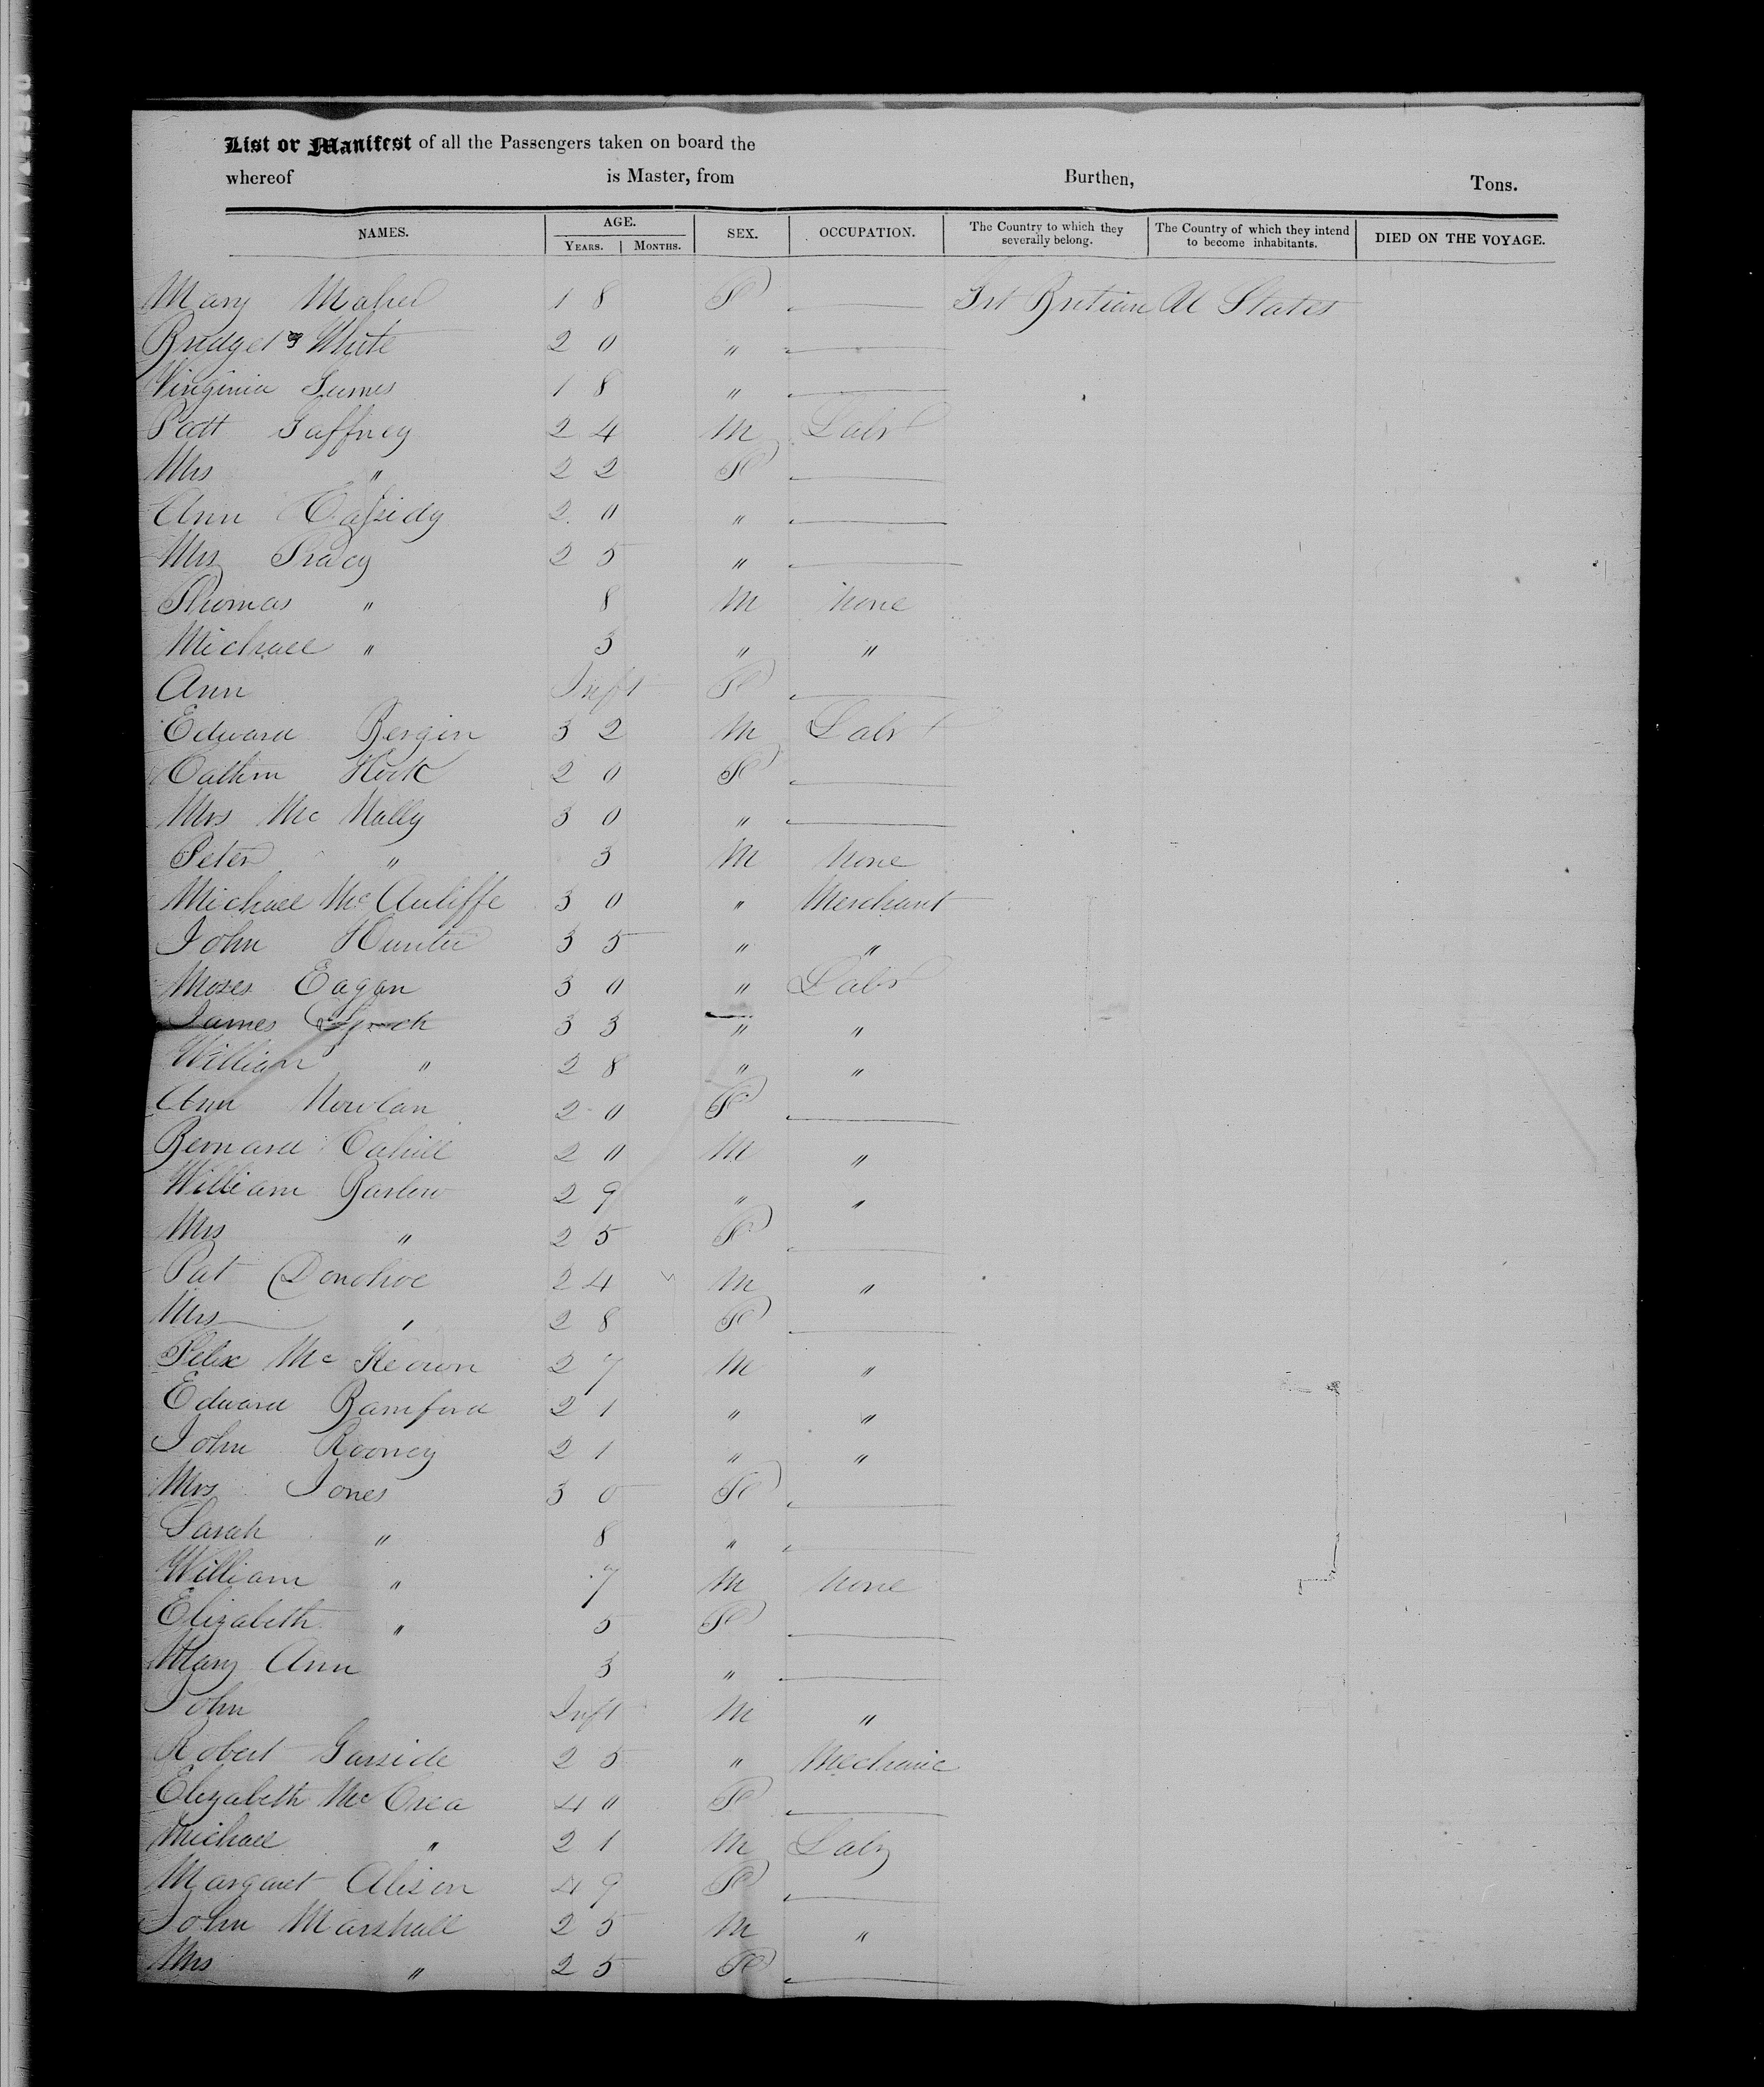 List or Manifest of all the Passengers taken on board the
whereof is Master, from Burthen, Tons.
NAMES. AGE. SEX. OCCUPATION. The Country to which they severally belong. The Country of which they intend to become inhabitants. DIED ON THE VOYAGE.
YEARS. MONTHS.
Mary Maher 18 F — Grt Britian U States
Bridget White 20 " —
Virginia James 18 " —
Patt Gaffney 24 M Labr
Mrs " 22 F —
Ann Cassidy 20 " —
Mrs Tracy 25 " —
Thomas " 8 M None
Michael " 3 " "
Ann Inft F —
Edward Bergin 32 M Labr
Cathrn 20 F —
Mrs Mc Nally 30 " —
Peter " 3 M None
Michael McAuliffe 30 " Merchant
John Hunter 35 " "
Moses Eagan 30 " Labr
James Lynch 33 " "
William " 28 " "
Ann Nowlan 20 F —
Bernard Cahill 20 M "
William Barlow 29 " "
Mrs " 25 F —
Pat Donohoe 24 M "
Mrs " 28 F —
Felix Mc Keown 27 M "
Edward Bamford 21 " "
John Rooney 21 " "
Mrs Jones 30 F —
Sarah " 8 " —
William " 7 M None
Elizabeth " 5 F —
Mary Ann 3 " —
John Inft M "
Robert Garside 25 " Mechanic
Elizabeth McCrea 40 F —
Michael " 21 M Labr
Margaret Alison 49 F —
John Marshall 25 M "
Mrs " 25 F —